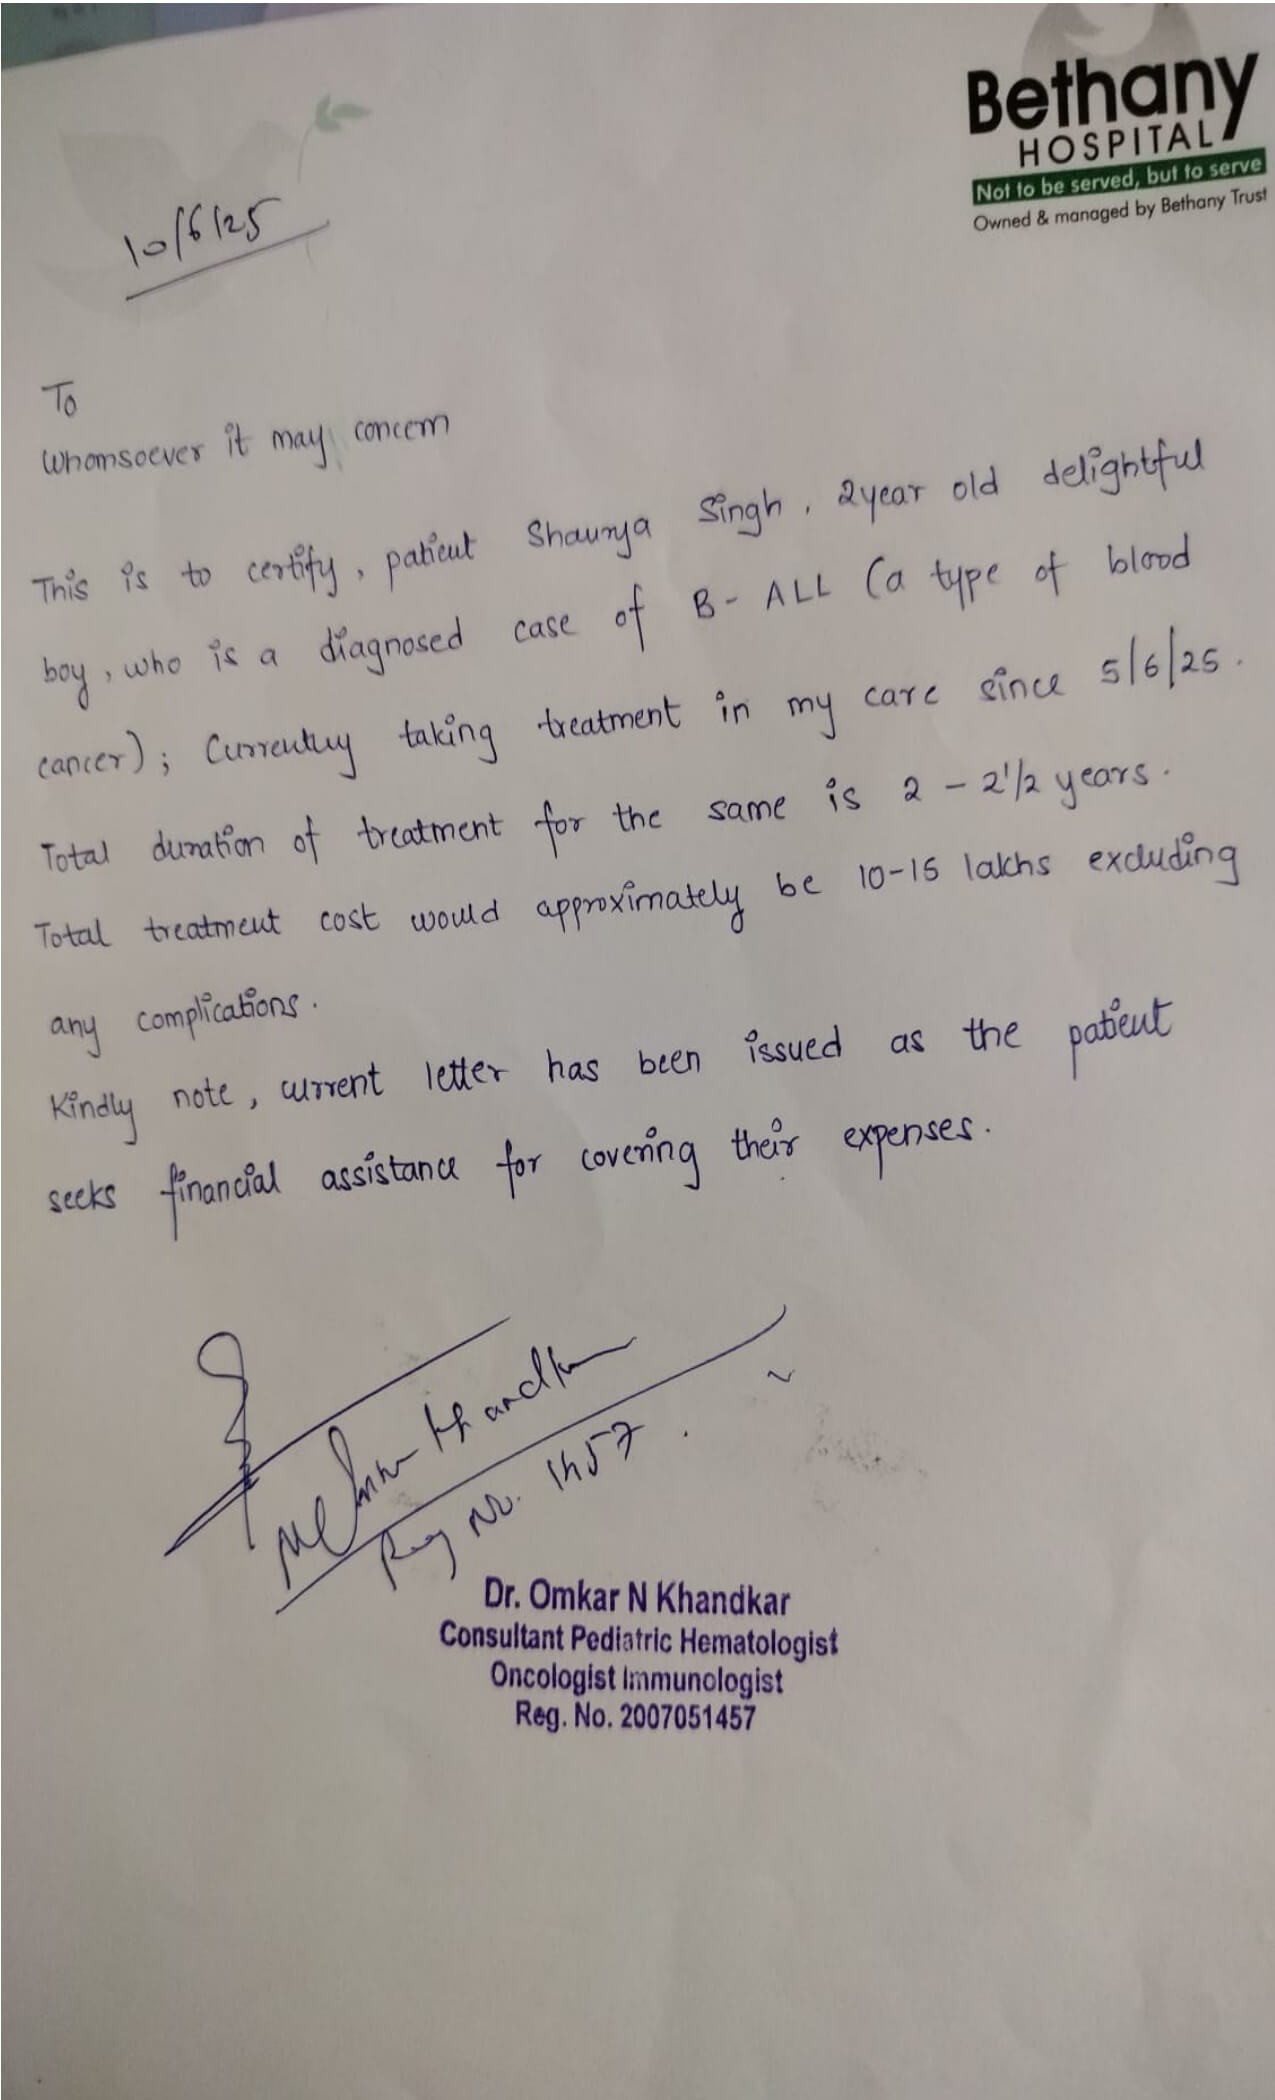 Bethany
HOSPITAL
Not to be served, but to serve
Owned & managed by Bethany Trust
10/6/25
To
Whomsoever it may concern
This is to certify, patient Shaurya Singh, 2year old delightful
boy, who is a diagnosed case of B- ALL (a type of blood
cancer); Currently taking treatment in my care since 5/6/25.
Total duration of treatment for the same is 2 - 2 1/2 years.
Total treatment cost would approximately be 10-15 lakhs excluding
any complications.
Kindly note, current letter has been issued as the patient
seeks financial assistance for covering their expenses.
Khandkar
Reg No. 1457.
Dr. Omkar N Khandkar
Consultant Pediatric Hematologist
Oncologist Immunologist
Reg. No. 2007051457